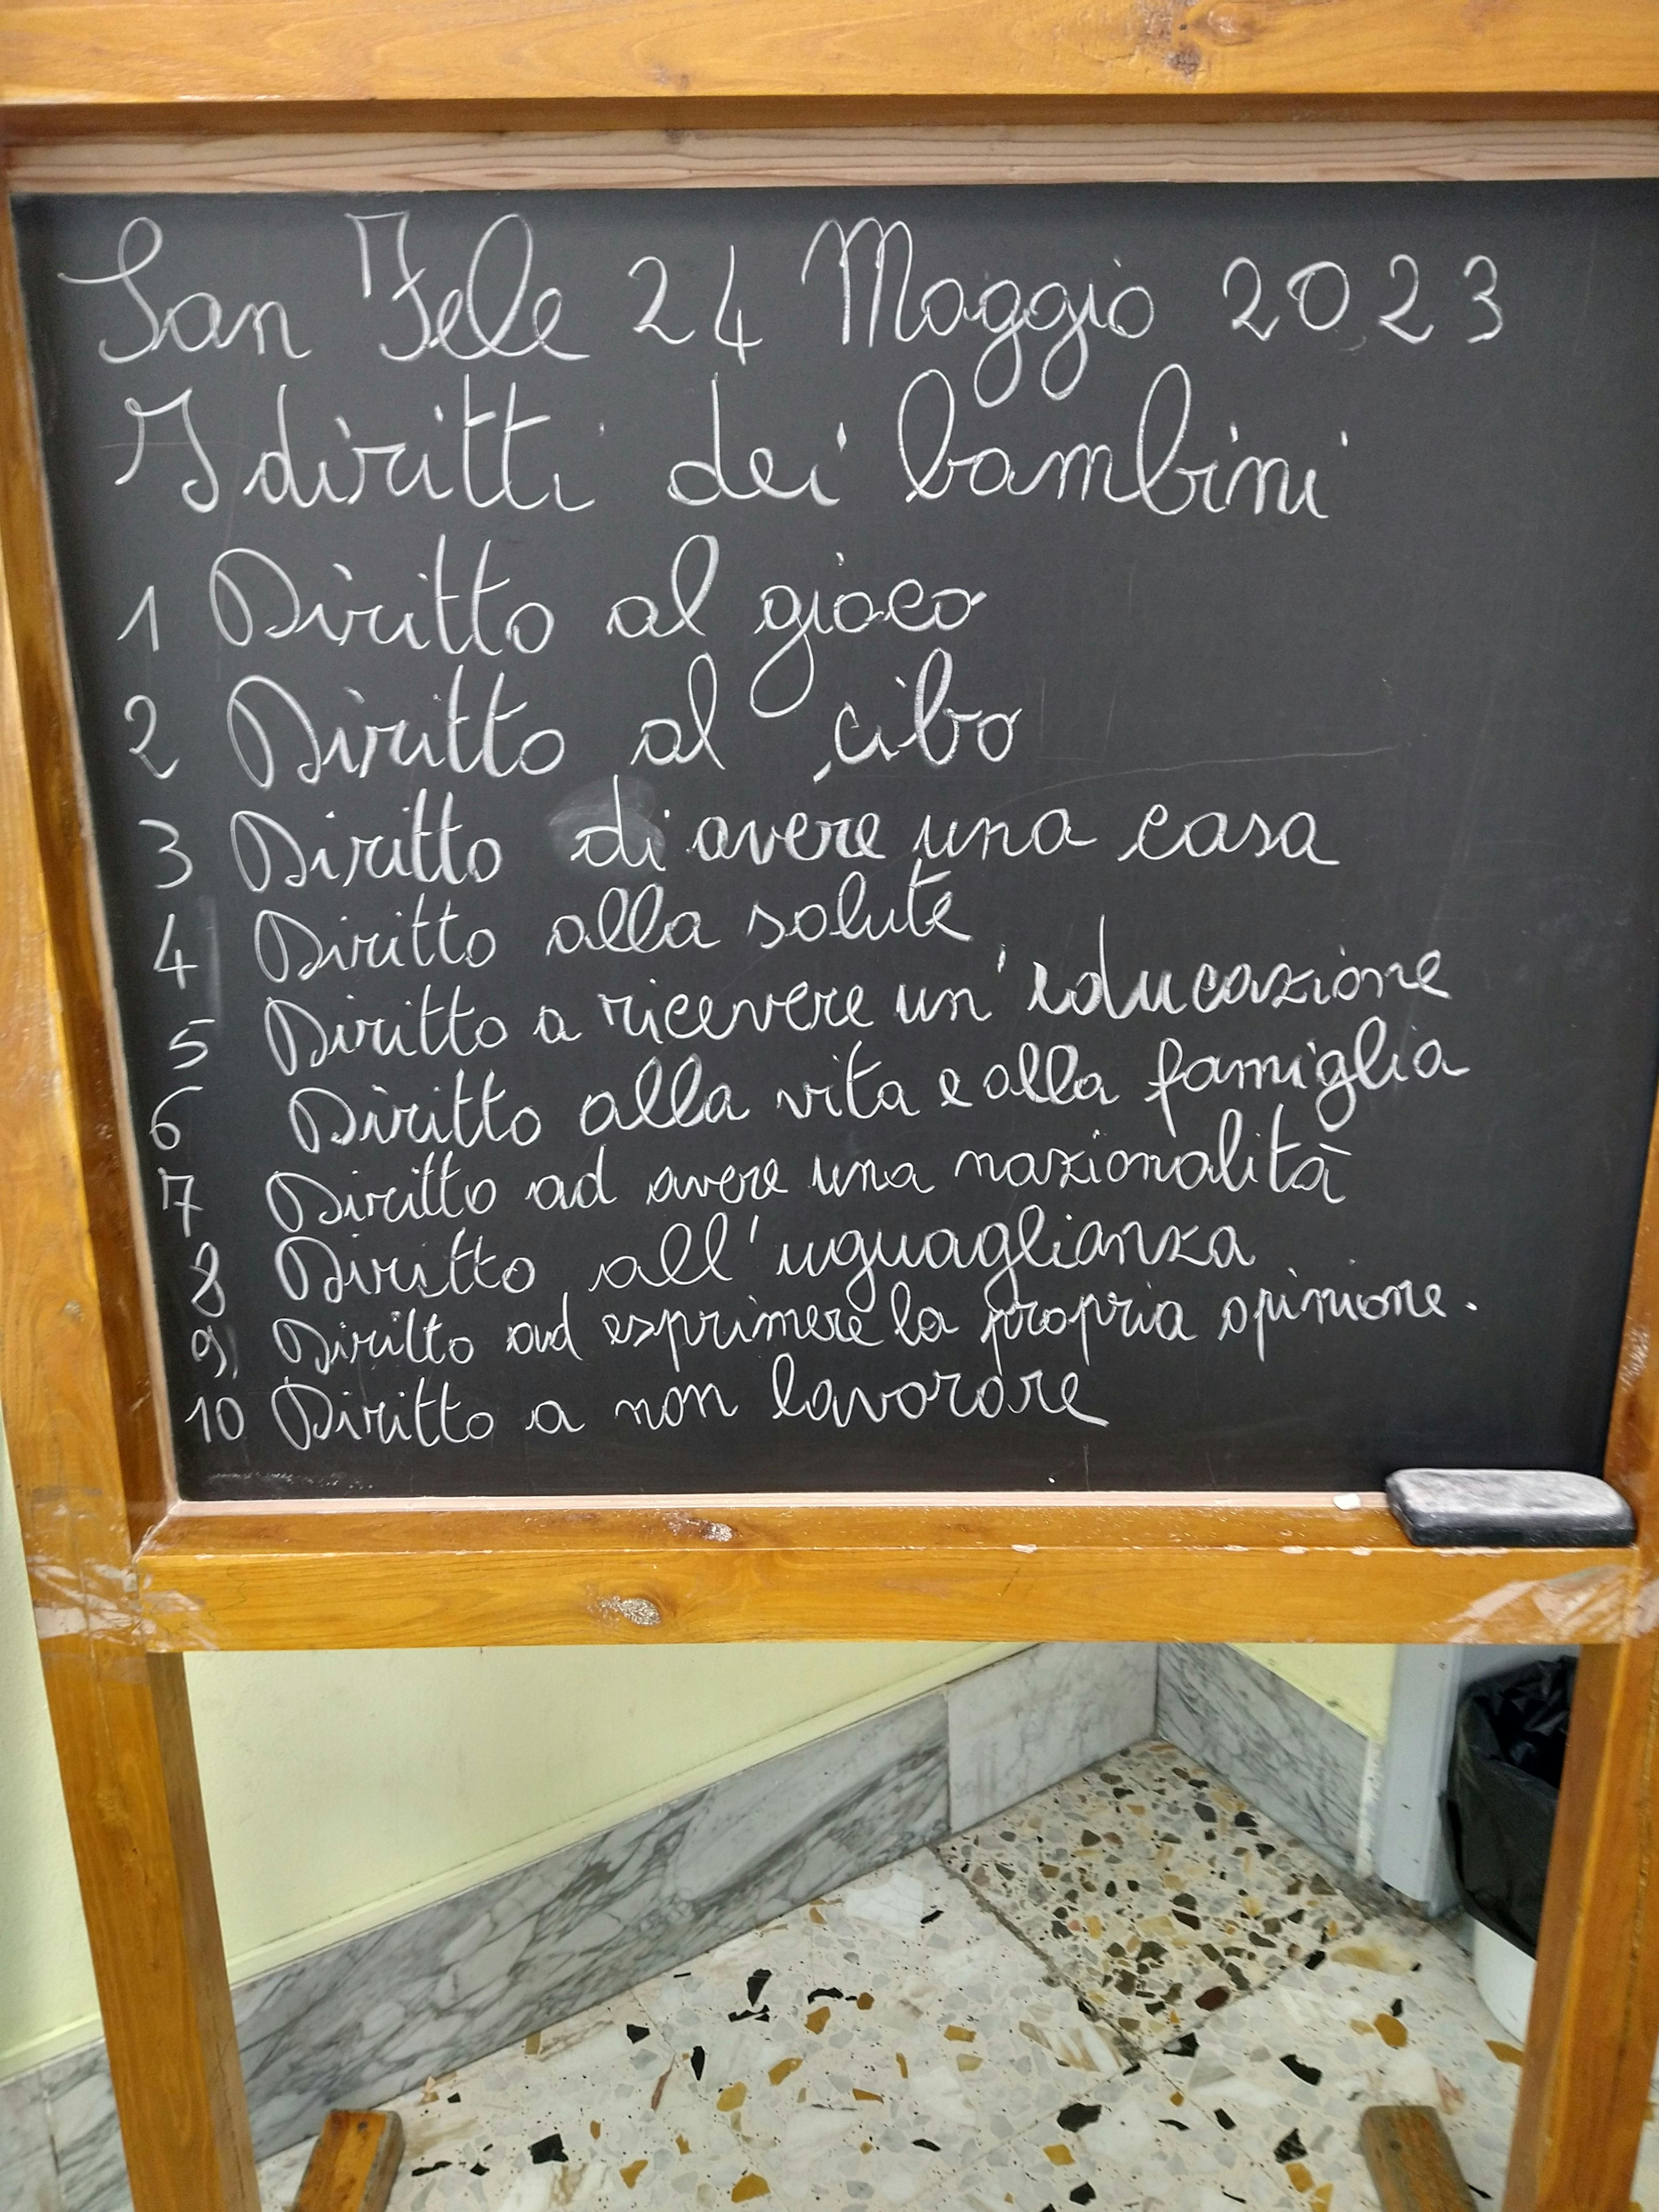 San Fele 24 Maggio 2023
I diritti dei bambini
1 Diritto al gioco
2 Diritto al cibo
3 Diritto di avere una casa
4 Diritto alla salute
5 Diritto a ricevere un'educazione
6 Diritto alla vita e alla famiglia
7 Diritto ad avere una nazionalità
8 Diritto all'uguaglianza
9) Diritto ad esprimere la propria opinione.
10 Diritto a non lavorare